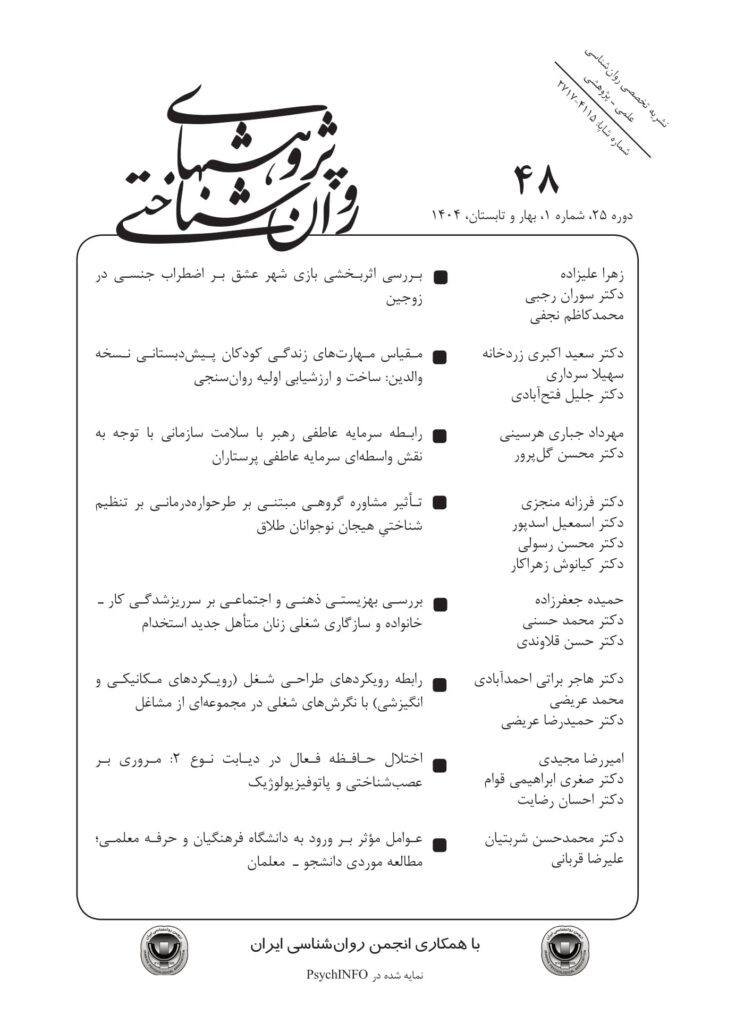 نشریه تخصصی روان‌شناسی
علمی - پژوهشی
شماره شاپا: ۴۱۱۵-۲۷۱۷
پژوهشهای
روان‌شناختی
۴۸
دوره ۲۵، شماره ۱، بهار و تابستان، ۱۴۰۴
زهرا علیزاده
دکتر سوران رجبی
محمدکاظم نجفی
بـررسی اثربـخشی بازی شهر عشق بـر اضطراب جنسـی در
زوجین
دکتر سعید اکبری زردخانه
سهیلا سرداری
دکتر جلیل فتح‌آبادی
مـقیاس مـهارت‌های زندگـی کودکان پـیش‌دبستانـی نـسخه
والدین: ساخت و ارزشیابی اولیه روان‌سنجی
مهرداد جباری هرسینی
دکتر محسن گل‌پرور
رابـطه سرمایه عاطفی رهبر با سلامت سازمانی با توجه به
نقش واسطه‌ای سرمایه عاطفی پرستاران
دکتر فرزانه منجزی
دکتر اسمعیل اسدپور
دکتر محسن رسولی
دکتر کیانوش زهراکار
تـأثیر مشاوره گروهـی مبتنـی بر طرحواره‌درمانـی بر تنظیم
شناختیِ هیجان نوجوانان طلاق
حمیده جعفرزاده
دکتر محمد حسنی
دکتر حسن قلاوندی
بررسی بهزیستـی ذهنـی و اجتماعـی بر سرریزشدگـی کار ـ
خانواده و سازگاری شغلی زنان متأهل جدید استخدام
دکتر هاجر براتی احمدآبادی
محمد عریضی
دکتر حمیدرضا عریضی
رابطه رویکردهای طراحی شـغل (رویـکردهای مـکانیکـی و
انگیزشی) با نگرش‌های شغلی در مجموعه‌ای از مشاغل
امیررضا مجیدی
دکتر صغری ابراهیمی قوام
دکتر احسان رضایت
اختلال حـافـظه فـعال در دیـابت نـوع ۲: مـروری بـر
عصب‌شناختی و پاتوفیزیولوژیک
دکتر محمدحسن شربتیان
علیرضا قربانی
عـوامل مؤثر بـر ورود به دانشگاه فرهنگیان و حرفـه معلمـی؛
مطالعه موردی دانشجو ـ معلمان
با همکاری انجمن روان‌شناسی ایران
نمایه شده در PsychINFO